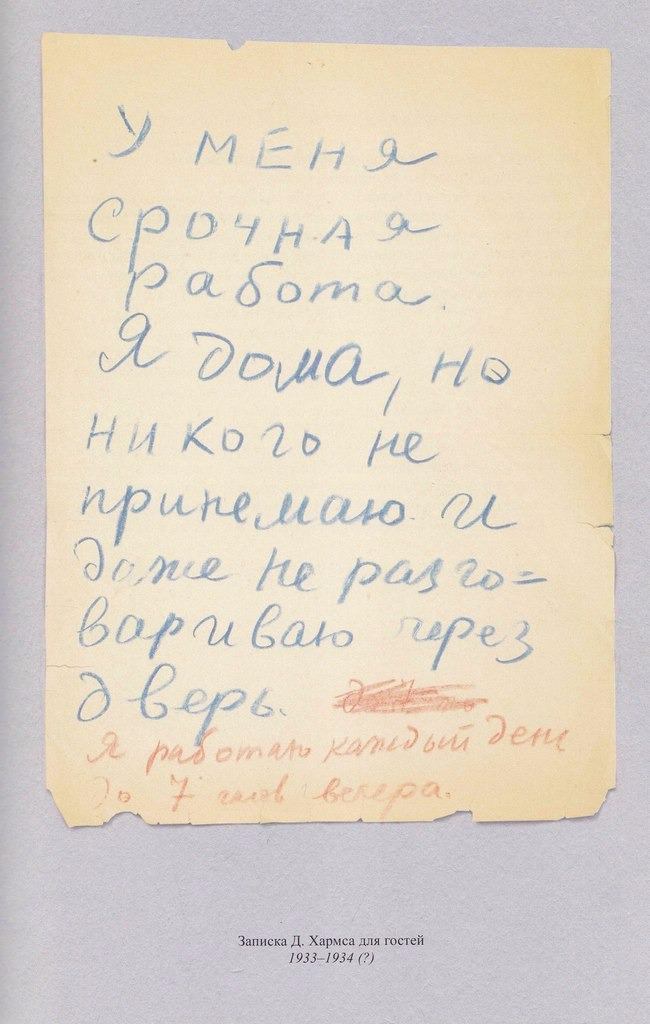 У МЕНЯ
СРОЧНАЯ
работа.
Я дома, но
никого не
принемаю и
даже не разго=
вариваю через
дверь.
Я работаю каждый день
до 7 часов вечера.
Записка Д. Хармса для гостей
1933–1934 (?)